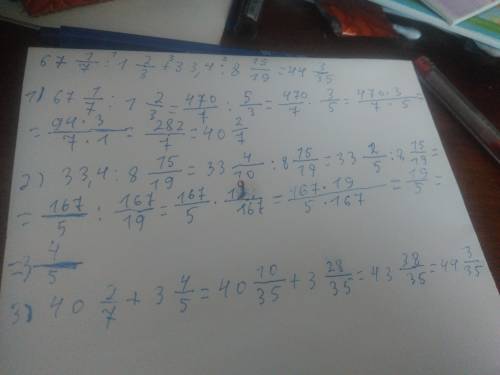 67 1/7 : 1 2/3 + 33,4 : 8 15/19 = 44 3/35
1) 67 1/7 : 1 2/3 = 470/7 : 5/3 = 470/7 · 3/5 = 470·3/7·5 =
= 94·3/7·1 = 282/7 = 40 2/7
2) 33,4 : 8 15/19 = 33 4/10 : 8 15/19 = 33 2/5 : 8 15/19 =
= 167/5 : 167/19 = 167/5 · 19/167 = 167·19/5·167 = 19/5 =
= 3 4/5
3) 40 2/7 + 3 4/5 = 40 10/35 + 3 28/35 = 43 38/35 = 44 3/35